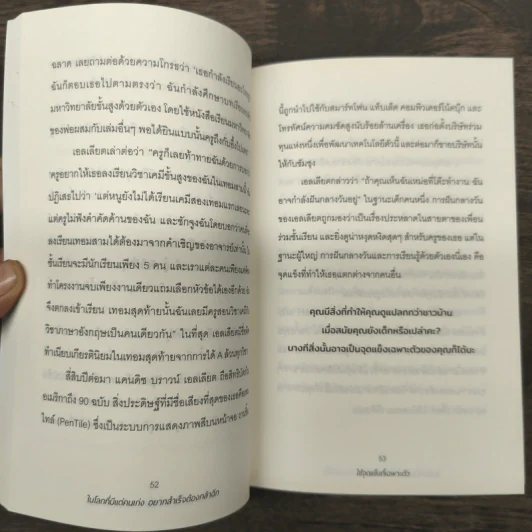 ฉลาด เลยถามต่อด้วยความโกรธว่า 'เธอกำลังเรียนอะไรอยู่
ฉันก็ตอบเธอไปตามตรงว่า ฉันกำลังศึกษาบทเรียน
มหาวิทยาลัยชั้นสูงด้วยตัวเอง โดยใช้หนังสือเรียนมหาวิทยาลัย
ของพ่อผสมกับเล่มอื่นๆ พอได้ยินแบบนั้นครูถึงกับ
เอลเลียตเล่าต่อว่า "ครูก็เลยท้าทายฉันด้วยการ
'ครูอยากให้เธอลงเรียนวิชาเคมีชั้นสูงของฉันในเทอม
ปฏิเสธไปว่า 'แต่หนูยังไม่ได้เรียนเคมีสองเทอมแรกเลย
แต่ครูไม่ฟังคำคัดค้านของฉัน และชักจูงฉันโดยบอกว่า
ลงเรียนเทอมสามได้ต้องมาจากคำเชิญของอาจารย์เท่านั้น
ชั้นเรียนจะมีนักเรียนเพียง 5 คน และเราแต่ละคนเพียงแค่
ทำโครงงานจบเพียงงานเดียวแถมเลือกหัวข้อได้เองอีกด้วย
จึงตกลงเข้าเรียน เทอมสุดท้ายนั้นฉันเลยมีครูสอนวิชา
วิชาภาษาอังกฤษเป็นคนเดียวกัน" ในที่สุด เอลเลียต
ทำเนียบเกียรตินิยมในเทอมสุดท้ายจากการได้ A ล้วนทุกวิชา
สี่สิบปีต่อมา แคนดิซ บราวน์ เอลเลียต ถือสิทธิบัตร
อเมริกาถึง 90 ฉบับ สิ่งประดิษฐ์ที่มีชื่อเสียงที่สุดของเธอคือ
ไทล์ (PenTile) ซึ่งเป็นระบบการแสดงภาพสีบนหน้าจอ
52
ในโลกที่มีแต่คนเก่ง อยากสำเร็จต้องกล้าฉีก
นี้ถูกนำไปใช้กับสมาร์ทโฟน แท็บเล็ต คอมพิวเตอร์โน้ตบุ๊ก และ
โทรทัศน์ความคมชัดสูงนับร้อยล้านเครื่อง เธอก่อตั้งบริษัทร่วม
ทุนแห่งหนึ่งเพื่อพัฒนาเทคโนโลยีตัวนี้ และต่อมาก็ขายบริษัทนั้น
ให้กับซัมซุง
เอลเลียตกล่าวว่า "ถ้าคุณเห็นฉันเหม่อที่โต๊ะทำงาน ฉัน
อาจกำลังฝันกลางวันอยู่" ในฐานะเด็กคนหนึ่ง การฝันกลางวัน
ของเอลเลียตถูกมองว่าเป็นเรื่องประหลาดในสายตาของเพื่อน
ร่วมชั้นเรียน และยิ่งดูน่าหงุดหงิดสุดๆ สำหรับครูของเธอ แต่ใน
ฐานะผู้ใหญ่ การฝันกลางวันและการเรียนรู้ด้วยตัวเองนี้เอง คือ
จุดแข็งที่ทำให้เธอแตกต่างจากคนอื่น
คุณมีสิ่งที่ทำให้คุณดูแปลกกว่าชาวบ้าน
เมื่อสมัยคุณยังเด็กหรือเปล่าคะ?
บางทีสิ่งนั้นอาจเป็นจุดแข็งเฉพาะตัวของคุณก็ได้นะ
53
ใช้จุดแข็งที่เฉพาะตัว